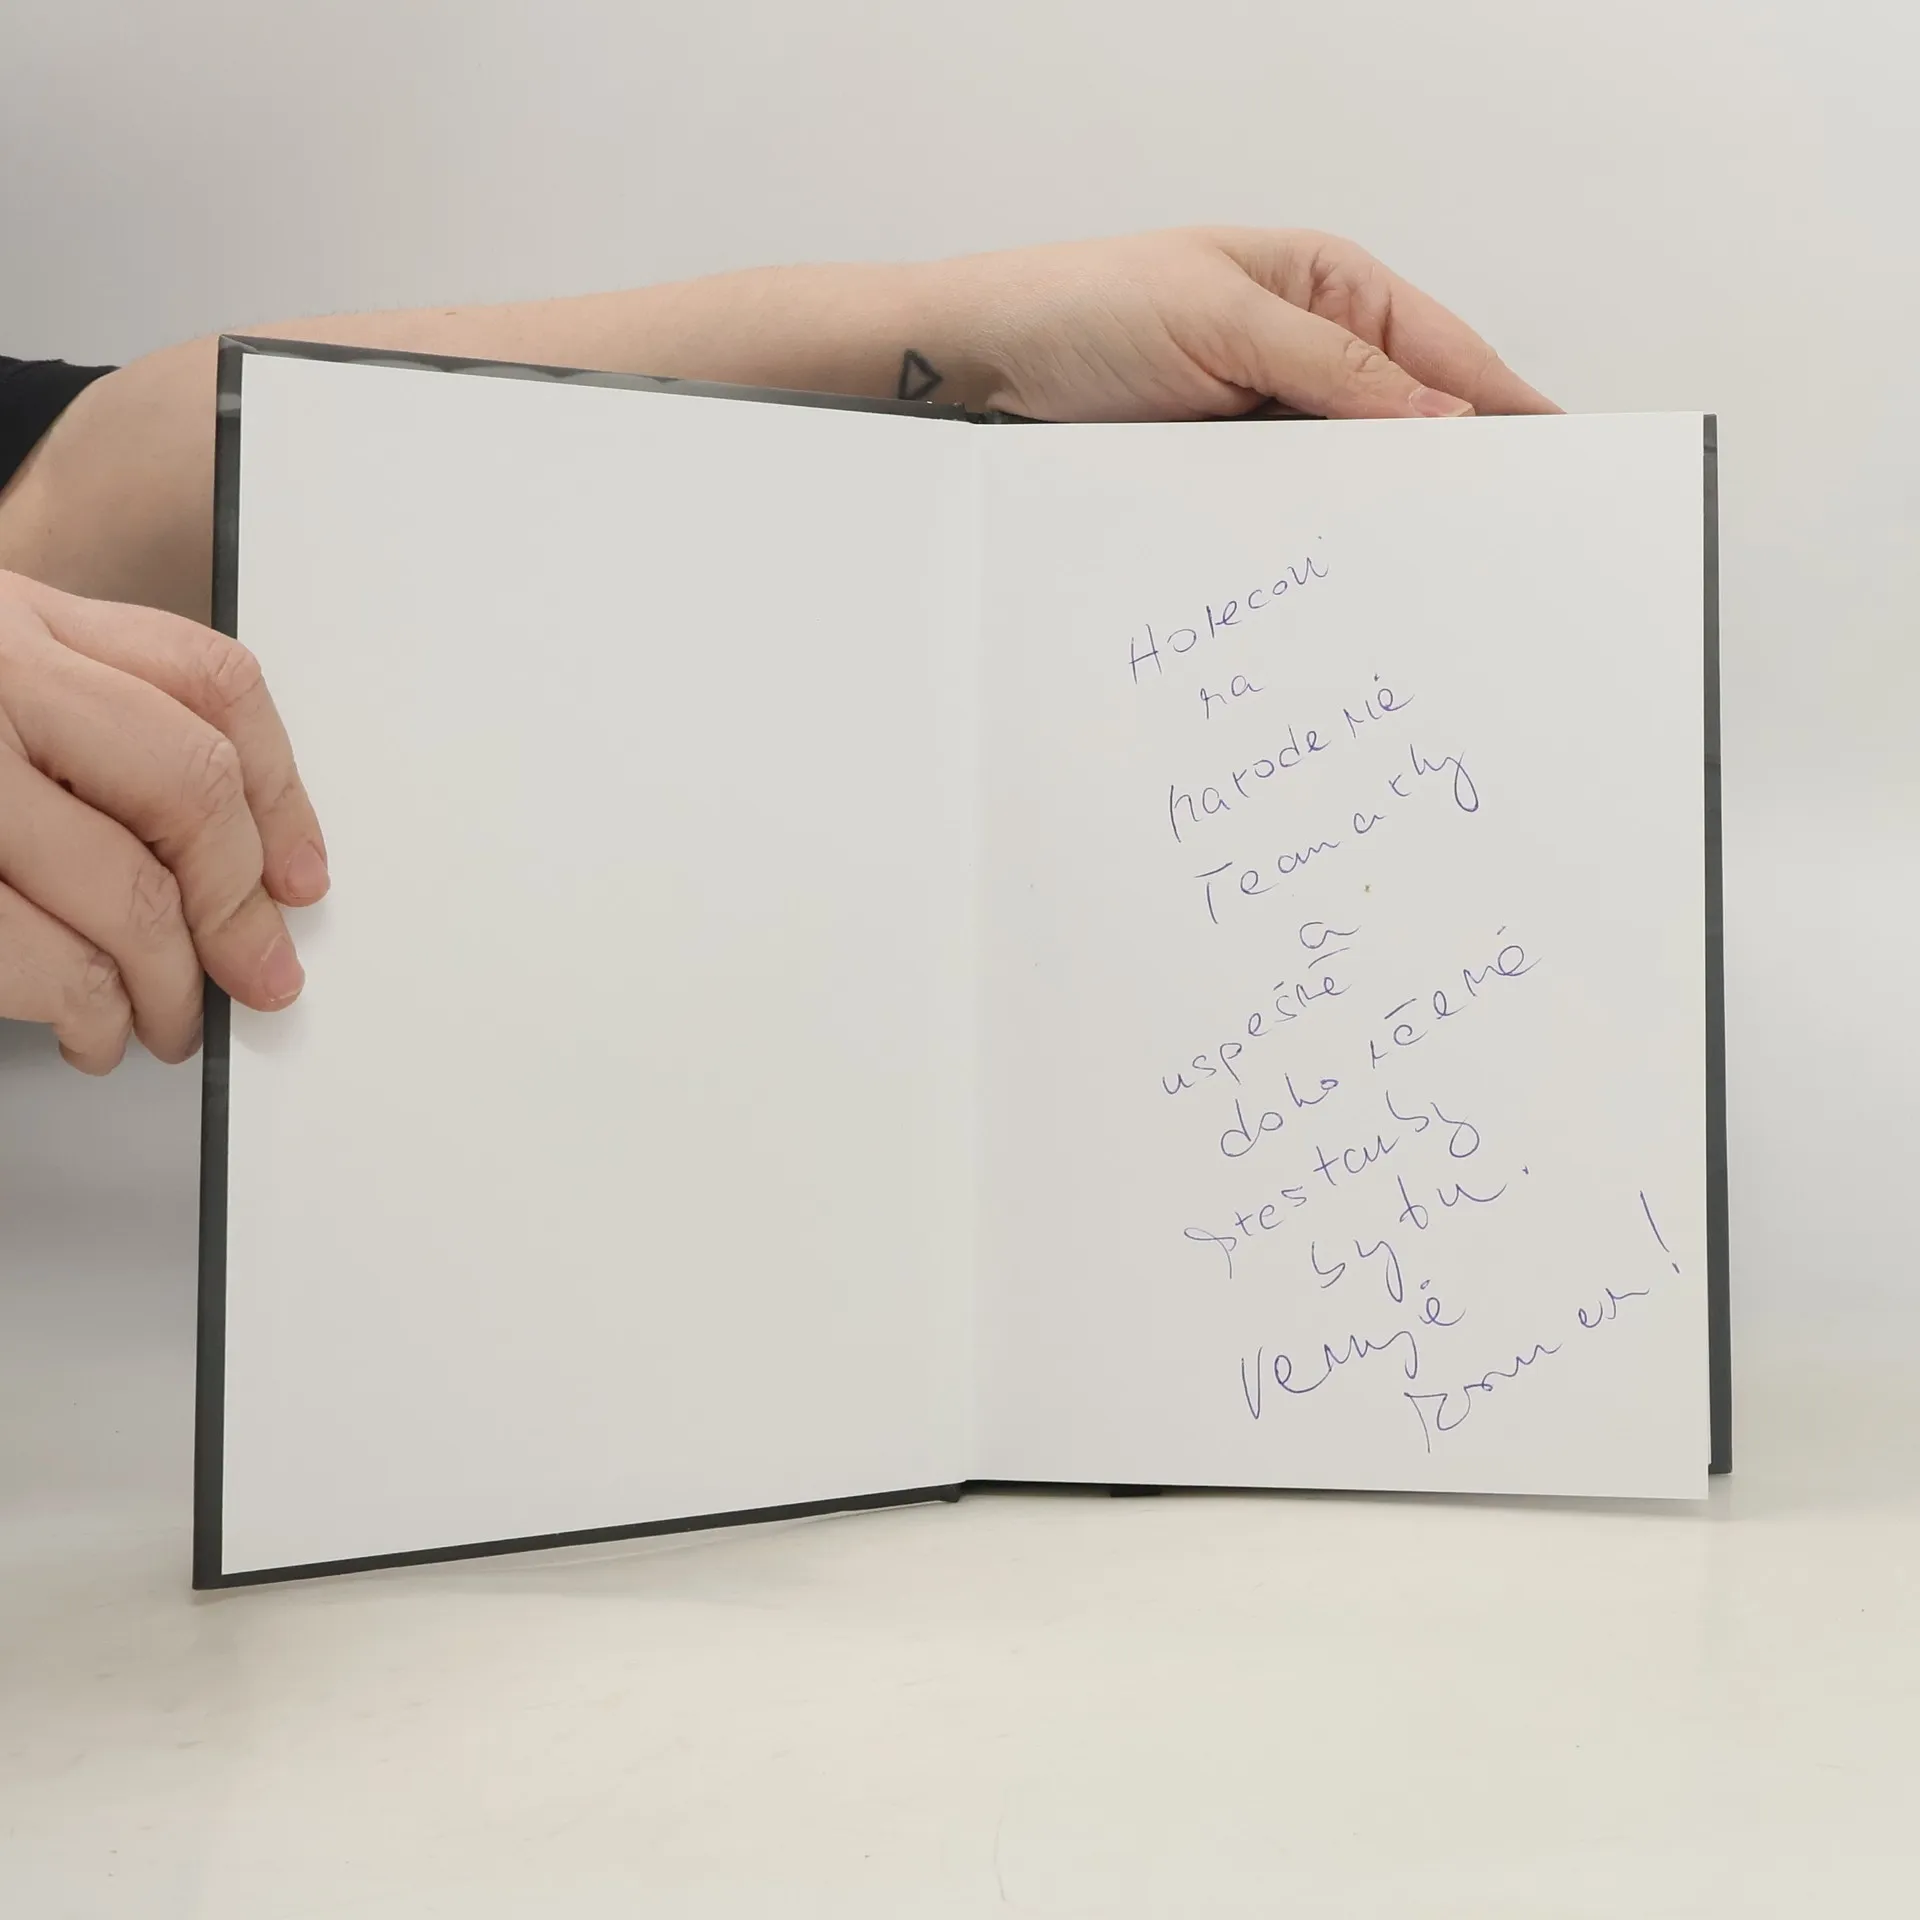 Holecovi
na
narodenié
Teamatky
a
uspešné
dokončené
prestavby
bytu.
Venuje